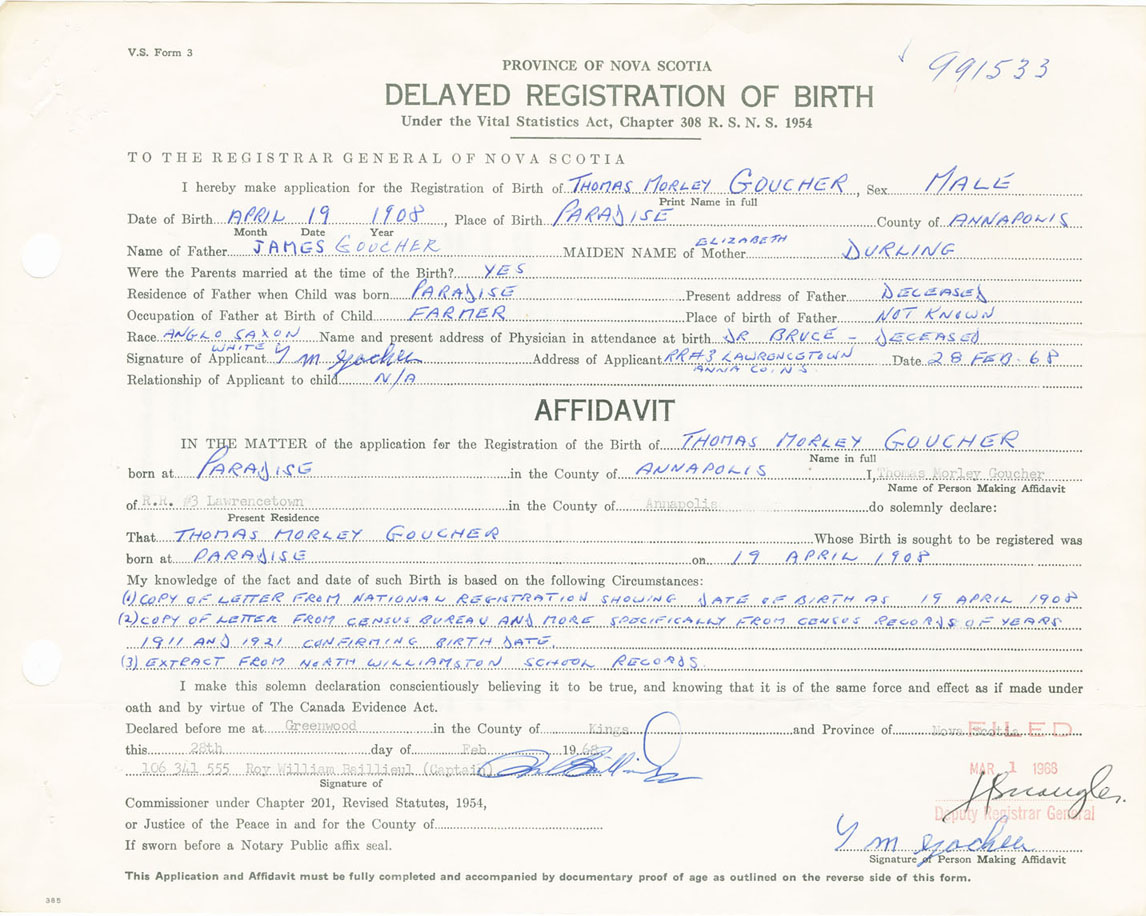 V.S. Form 3
991533
PROVINCE OF NOVA SCOTIA
DELAYED REGISTRATION OF BIRTH
Under the Vital Statistics Act, Chapter 308 R. S. N. S. 1954
TO THE REGISTRAR GENERAL OF NOVA SCOTIA
I hereby make application for the Registration of Birth of THOMAS MORLEY GOUCHER, Sex MALE
Print Name in full
Date of Birth APRIL 19 1908, Place of Birth PARADISE County of ANNAPOLIS
Month Date Year
Name of Father JAMES GOUCHER MAIDEN NAME of Mother ELIZABETH DURLING
Were the Parents married at the time of the Birth? YES
Residence of Father when Child was born PARADISE Present address of Father DECEASED
Occupation of Father at Birth of Child FARMER Place of birth of Father NOT KNOWN
Race ANGLO SAXON WHITE Name and present address of Physician in attendance at birth DR BRUCE - DECEASED
Signature of Applicant T M Goucher Address of Applicant RR#3 LAWRENCETOWN ANNA CO. NS Date 28 FEB. 68
Relationship of Applicant to child N/A
AFFIDAVIT
IN THE MATTER of the application for the Registration of the Birth of THOMAS MORLEY GOUCHER
Name in full
born at PARADISE in the County of ANNAPOLIS I, Thomas Morley Goucher
Name of Person Making Affidavit
of R.R. #3 Lawrencetown in the County of Annapolis do solemnly declare:
Present Residence
That THOMAS MORLEY GOUCHER Whose Birth is sought to be registered was
born at PARADISE on 19 APRIL 1908
My knowledge of the fact and date of such Birth is based on the following Circumstances:
(1) COPY OF LETTER FROM NATIONAL REGISTRATION SHOWING DATE OF BIRTH AS 19 APRIL 1908
(2) COPY OF LETTER FROM CENSUS BUREAU AND MORE SPECIFICALLY FROM CENSUS RECORDS OF YEARS
1911 AND 1921 CONFIRMING BIRTH DATE.
(3) EXTRACT FROM NORTH WILLIAMSTON SCHOOL RECORDS.
I make this solemn declaration conscientiously believing it to be true, and knowing that it is of the same force and effect as if made under
oath and by virtue of The Canada Evidence Act.
Declared before me at Greenwood in the County of Kings and Province of Nova Scotia
FILED
this 28th day of Feb 1968
MAR 1 1968
106 341 555 Roy William Baillieul (Captain)
Signature of
Commissioner under Chapter 201, Revised Statutes, 1954,
Deputy Registrar General
or Justice of the Peace in and for the County of
T M Goucher
If sworn before a Notary Public affix seal.
Signature of Person Making Affidavit
This Application and Affidavit must be fully completed and accompanied by documentary proof of age as outlined on the reverse side of this form.
385